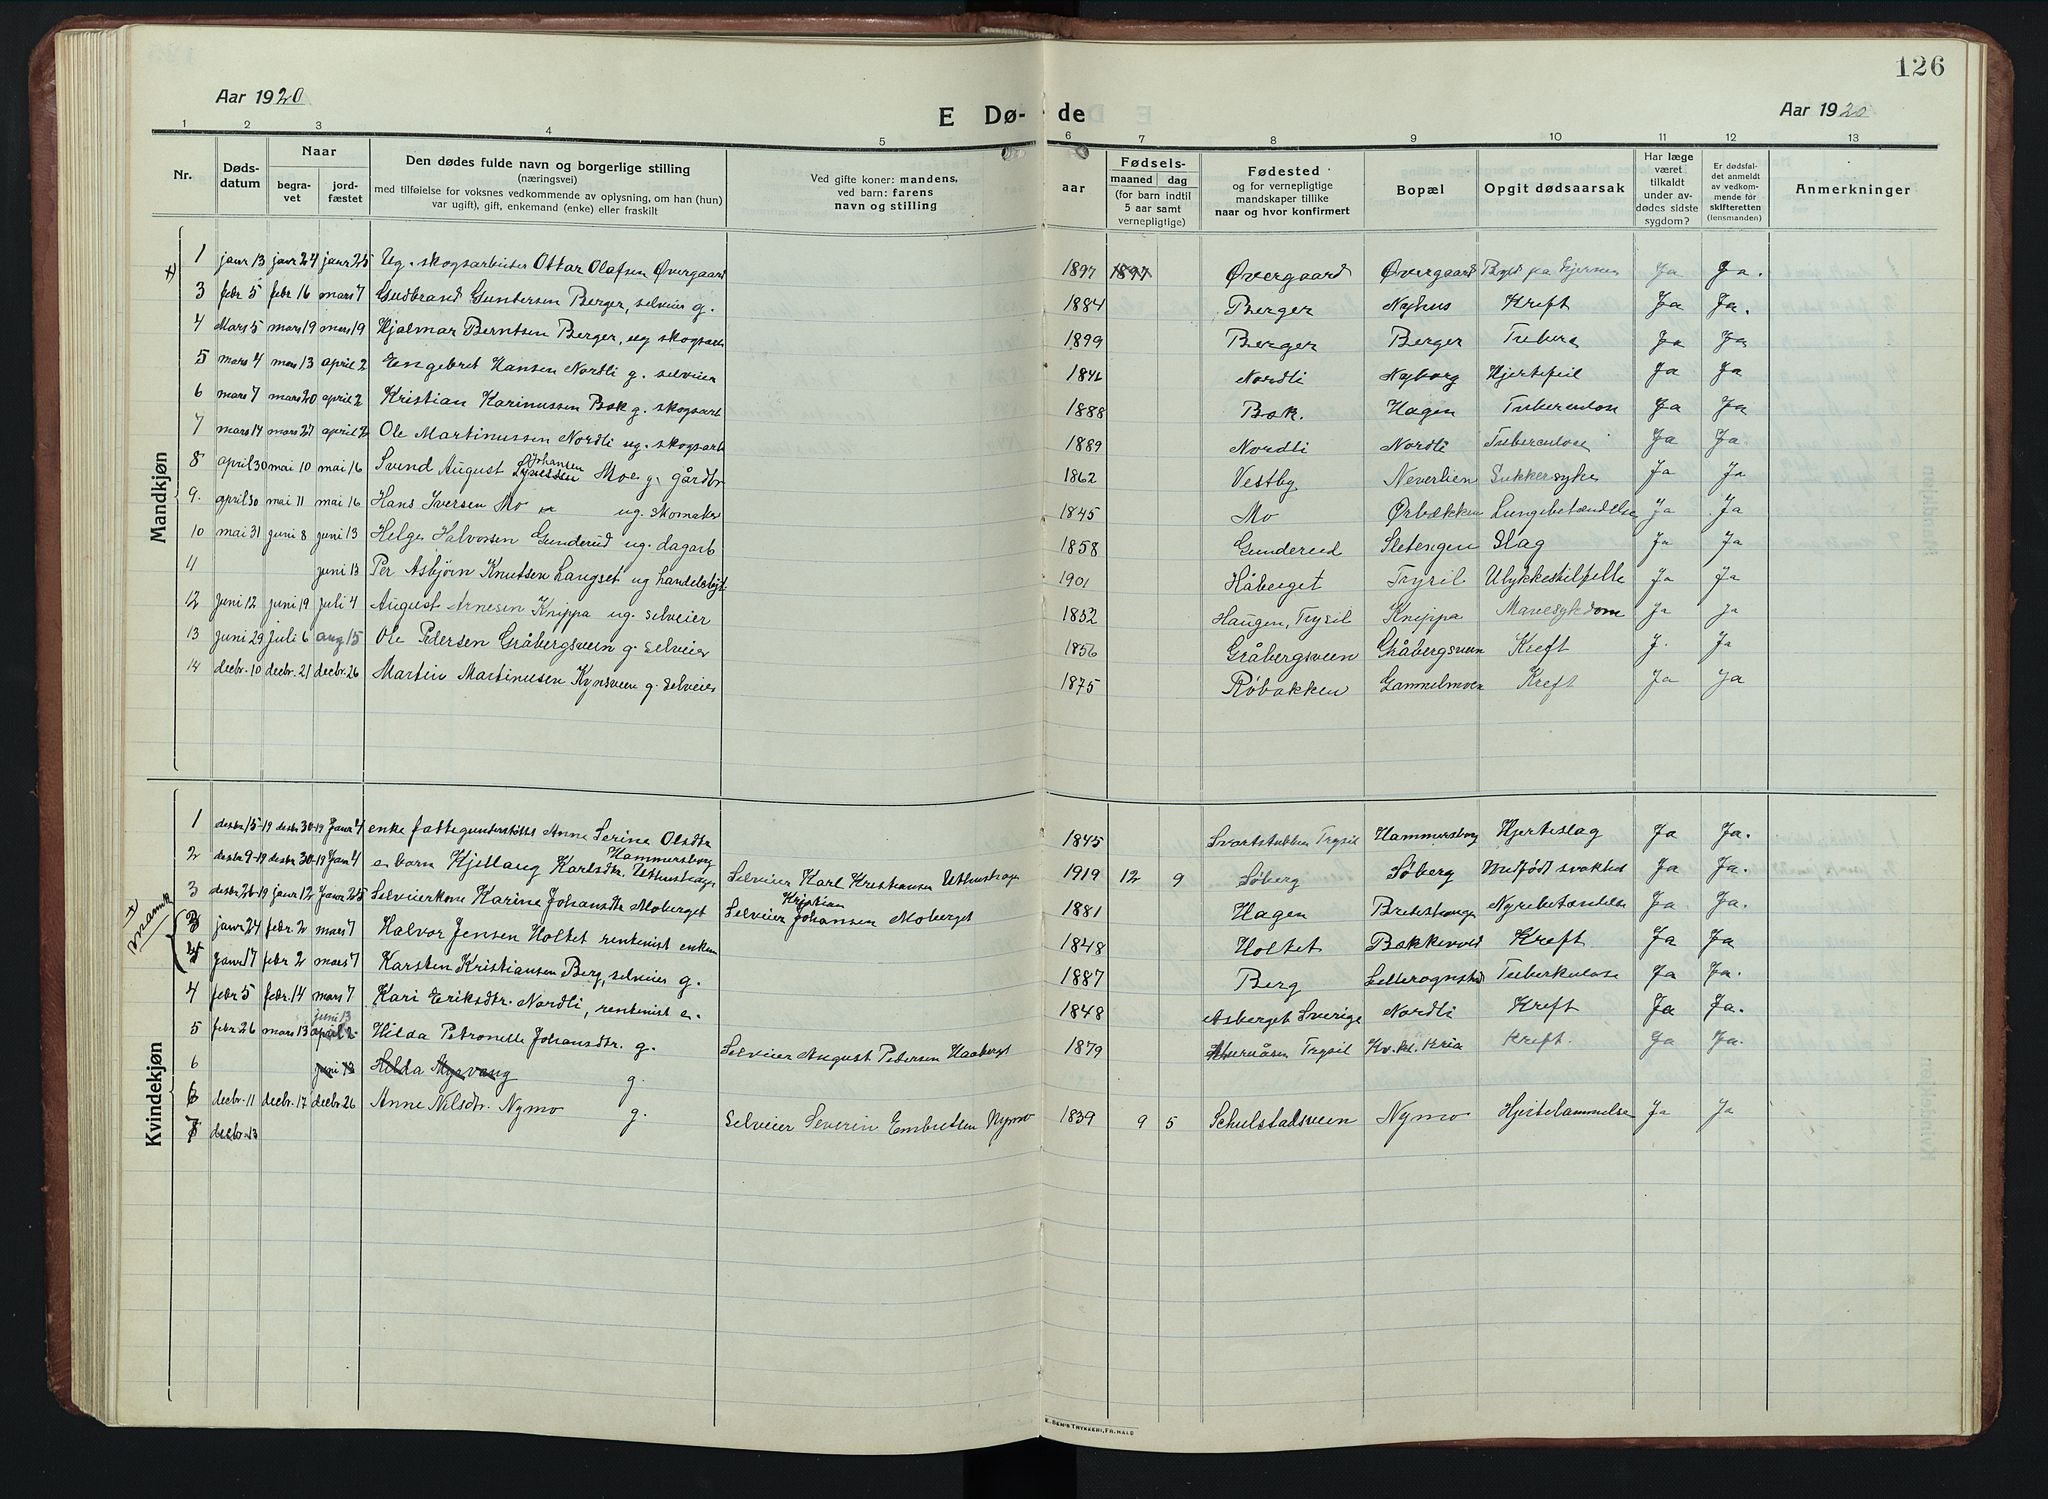 126
Aar 1920
E Dø- de
Aar 1920
1 2 3 4 5 6 7 8 9 10 11 12 13
Nr.
Døds-
datum
Naar
begra-
vet
jord-
fæstet
Den dødes fulde navn og borgerlige stilling
(næringsvei)
med tilføielse for voksnes vedkommende av oplysning, om han (hun)
var ugift), gift, enkemand (enke) eller fraskilt
Ved gifte koner: mandens,
ved barn: farens
navn og stilling
aar
Fødsels-
maaned dag
(for barn indtil
5 aar samt
vernepligtige)
Fødested
og for vernepligtige
mandskaper tillike
naar og hvor konfirmert
Bopæl
Opgit dødsaarsak
Har læge
været
tilkaldt
under av-
dødes sidste
sygdom?
Er dødsfal-
det anmeldt
av vedkom-
mende for
skifteretten
(lensmanden)
Anmerkninger
Mandkjøn
1 janr 13 janr 24 janr 25 Ug. skogsarbeider Ottar Olafsen Øvergaard 1897 1897 Øvergaard Øvergaard Byld pa Ja Ja.
3 febr 5 febr 16 mars 7 Gudbrand Gundersen Berger, selveier g. 1884 Berger Nyhus Kreft Ja Ja.
4 Mars 5 mars 19 mars 19 Hjalmar Berntsen Berger, ug skogsarb 1899 Berger Berger Ja Ja
5 mars 4 mars 13 april 2 Engebret Hansen Nordli g. selveier 1846 Nordli Nyborg Hjertefeil Ja Ja
6 mars 7 mars 20 april 2 Kristian Karinussen Bæk g. skogsarb 1888 Bæk. Hagen Tuberculose Ja Ja
7 mars 14 mars 27 april 2 Ole Martinussen Nordli ug. skogsarb 1889 Nordli Nordli Tuberculose Ja Ja
8 april 30 mai 10 mai 16 Svend August Johansen Moe g. gårdbr 1862 Vestby Neverlien Sukkersyke Ja Ja
9. april 30 mai 11 mai 16 Hans Iversen Mo ug. skomaker 1845 Mo Ørbækken Lungebetændelse Ja Ja
10 mai 31 juni 8 juni 13 Helge Halvorsen Gunderud ug. dagarb 1858 Gunderud Sletengen Slag Ja Ja
11 juni 13 Per Asbjørn Knutsen Langset ug handelsbgt 1901 Håberget Trysil Ulykkestilfelle Ja Ja
12 juni 12 juni 19 juli 4 August Arnesen Knippa ug. selveier 1852 Haugen, Trysil Knippa Mavesykdom Ja Ja
13 juni 29 juli 6 aug 15 Ole Pedersen Gråbergsveen g. selveier 1856 Gråbergsveen Gråbergsveen Kreft J. Ja
14 decbr. 10 decbr. 21 decbr. 26 Martin Martinusen Kynsveen g. selveier 1875 Røbakken Gammelmoen Kreft Ja Ja
Kvindekjøn
1 desbr 15-19 desbr 30-19 Janr 4 enke fattigunderstøtt Anne Serine Olsdtr Hammersborg 1845 Svartstubben Trysil Hammersborg Hjerteslag Ja Ja.
2 desbr 9-19 desbr 30-19 Jan 4 barn Kjellaug Karlsdtr. Uthushagen Selveier Karl Kristiansen Uthushagen 1919 12 9 Søberg Søberg Medfødt svakhet Ja Ja.
3 desbr 26-19 janr 12 Janr 25 Selveierkone Karine Johansdtr Moberget Selveier Kristian Johansen Moberget 1881 Hagen Nyrebetændelse Ja Ja.
3 janr 24 febr. 2 mars 7 Halvor Jensen Holtet rentenist enkem 1848 Holtet Bakkevold Kreft Ja Ja
4 janr 17 febr 2 mars 7 Karsten Kristiansen Berg, selveier g. 1887 Berg Tuberkulose Ja Ja.
4 febr 5 febr. 14 mars 7 Kari Eriksdtr. Nordli, rentenist e. 1848 Asberget Sverige Nordli Kreft Ja Ja.
juni 13
5 febr. 26 mars 13 april 2 Hilda Petronelle Johansdtr. g. Selveier August Pedersen Haaberget 1879 Trysil Kv. kl. Kria Kreft. Ja Ja.
6 juni 13 Hilda Myrvang g.
6 decbr. 11 decbr. 17 decbr. 26 Anne Nilsdtr. Nymo g. Selveier Severin Embretsen Nymo 1839 9 5 Schulstadsveen Nymo Hjertelammelse Ja Ja
7 decbr. 13
E. SEM'S TRYKKERI, FR.HALD